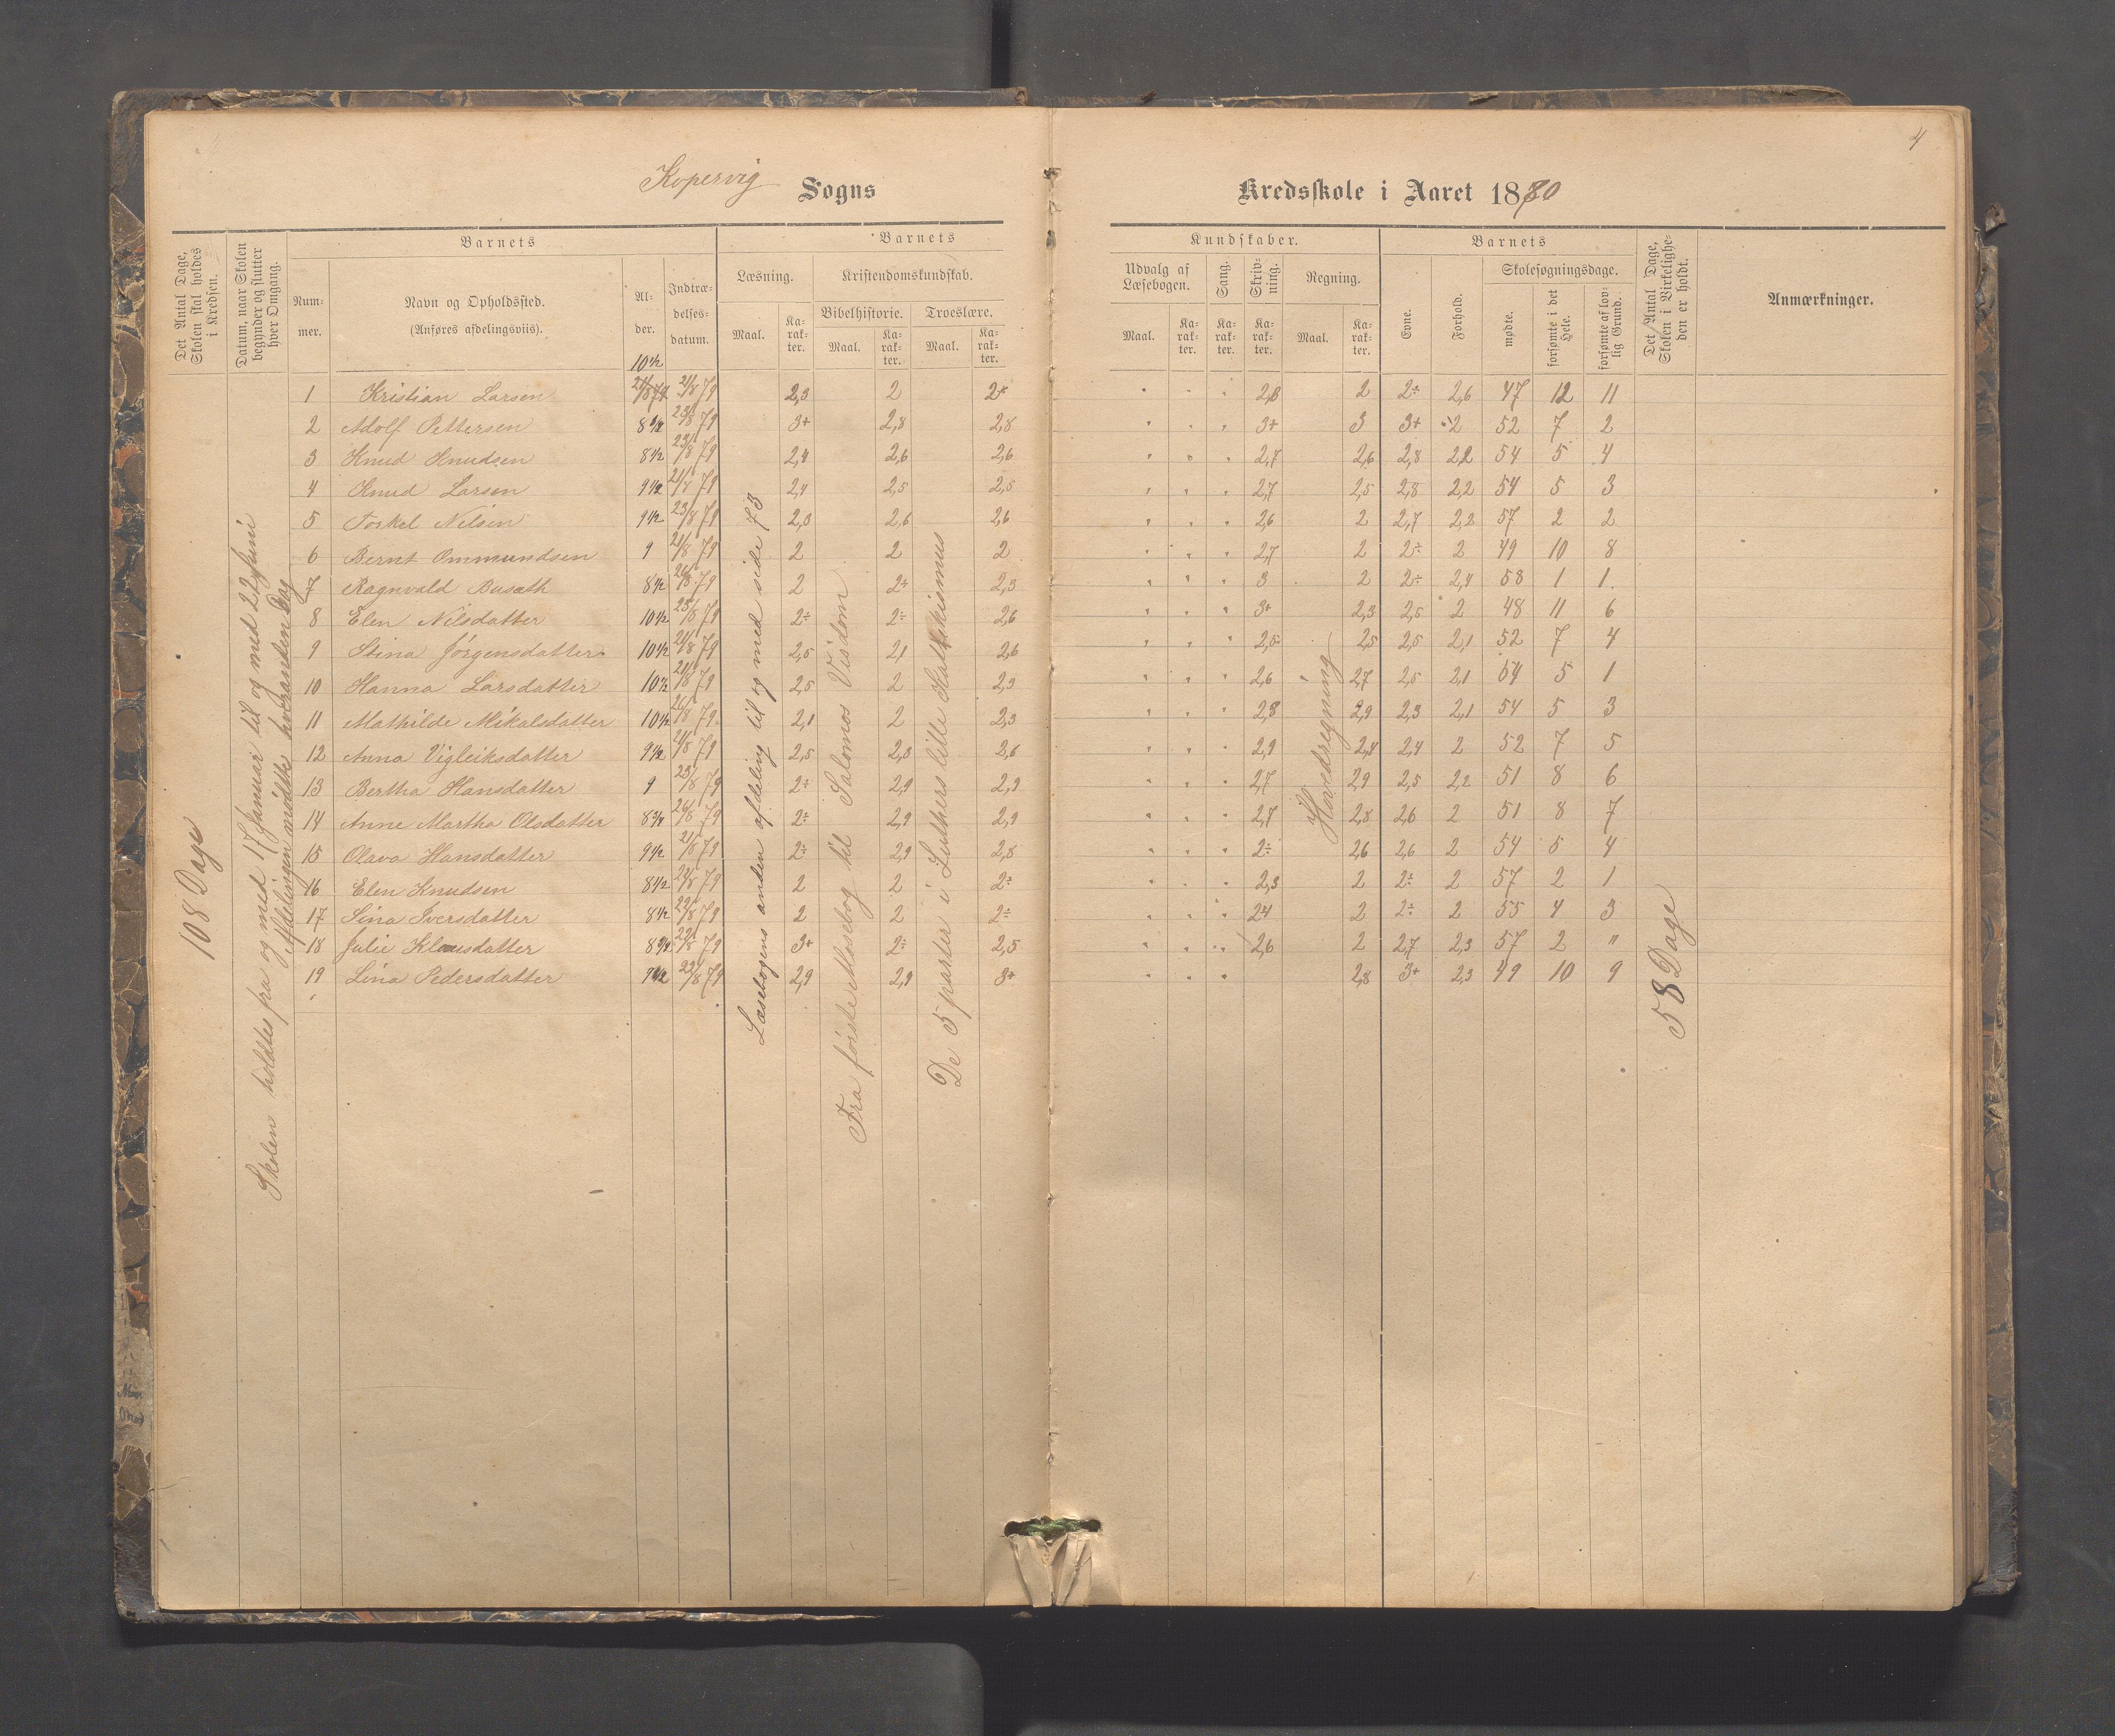 4
Kopervig Sogns Kredsskole i Aaret 1880
Det Antal Dage, Skolen skal holdes i Kredsen.
Datum, naar Skolen begynder og slutter hver Omgang.
Barnets
Nummer.
Navn og Opholdssted.
(Anføres afdelingsviis).
Alder.
Indtrædelsesdatum.
Barnets
Læsning.
Maal.
Karakter.
Kristendomskundskab.
Bibelhistorie.
Maal.
Karakter.
Troeslære.
Maal.
Karakter.
Kundskaber.
Udvalg af Læsebogen.
Maal.
Karakter.
Sang.
Karakter.
Skrivning.
Karakter.
Regning.
Maal.
Karakter.
Barnets
Evne.
Forhold.
Skolesøgningsdage.
mødte.
forsømte i det Hele.
forsømte af lovlig Grund.
Det Antal Dage, Skolen i Virkeligheden er holdt.
Anmærkninger.
10 1/2
1 Kristian Larsen 21/8 79 2,3 2 2 2,8 2 2÷ 2,6 47 12 11
2 Adolf Pettersen 23/8 79 3+ 2,8 2,8 3+ 3 3+ 2 52 7 2
3 Knud Knudsen 8 1/2 23/8 79 2,4 2,6 2,6 2,7 2,6 2,8 2,2 54 5 4
4 Knud Larsen 9 1/2 21/8 79 2,4 2,5 2,5 2,7 2,5 2,8 2,2 54 5 3
5 Torkel Nilsen 9 1/2 23/8 79 2,3 2,6 2,6 2,6 2 2,7 2,2 57 2 2
6 Bernt Ommundsen 9 21/8 79 2 2 2 2,7 2 2÷ 2 49 10 8
7 Ragnvald Busæth 8 1/2 79 2 2÷ 2,3 3 2 2÷ 2,4 58 1 1
8 Elen Nilsdatter 10 1/2 23/8 79 2÷ 2÷ 2,6 3+ 2,3 2,5 2 48 11 6
9 Stina Jørgensdatter 10 1/2 21/8 79 2,5 2,1 2,6 2,5 2,5 2,5 2,1 52 7 4
10 Hanna Larsdatter 10 1/2 21/8 79 2,5 2 2,3 2,6 2,7 2,5 2,1 54 5 1
11 Mathilde Mikalsdatter 10 1/2 26/8 79 2,1 2 2,3 2,8 2,9 2,3 2,1 54 5 3
12 Anna Vigleiksdatter 9 1/2 21/8 79 2,5 2,3 2,6 2,9 2,4 2,4 2 52 7 5
13 Bertha Hansdatter 9 23/8 79 2÷ 2,9 2,9 2,7 2,9 2,5 2,2 51 8 6
14 Anne Martha Olsdatter 8 3/4 26/8 79 2÷ 2,9 2,9 2,7 2,8 2,6 2 51 8 7
15 Olava Hansdatter 9 1/2 21/8 79 2÷ 2,9 2,8 2÷ 2,6 2,6 2 54 5 4
16 Elen Knudsen 8 1/2 79 2 2 2÷ 2,3 2 2÷ 2 57 2 1
17 Sina Iversdatter 8 1/2 22/8 79 2 2 2÷ 2,4 2 2÷ 2 55 4 3
18 Julie Klausdatter 8 3/4 22/8 79 3+ 2÷ 2,5 2,6 2 2,7 2,3 57 2 "
19 Lina Pedersdatter 22/8 79 2,9 2,9 3+ 2,8 3+ 2,3 49 10 9
108 Dage
Skolen holdtes fra og med 17 Januar til og med 22 Juni
Afdelingen mødte hveranden Dag
Læsebogens anden afdeling til og med side 73
Fra første Kloge bog til Salomos Visdom
De 5 parter i Luthers lille Katekismus
Hovedregning
58 Dage